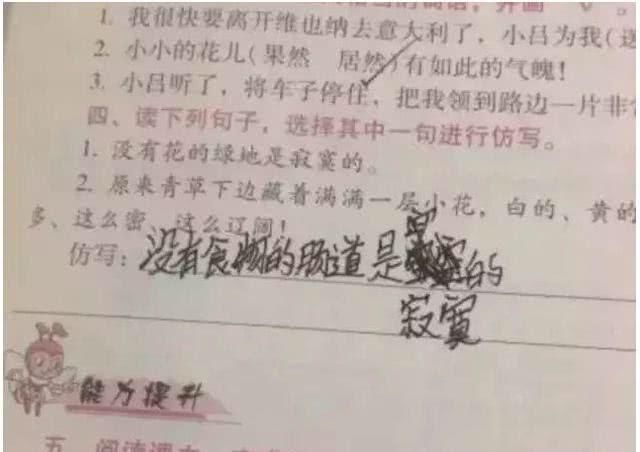 1. 我很快要离开维也纳去意大利了，小吕为我(送
2. 小小的花儿(果然 居然)有如此的气魄！
3. 小吕听了，将车子停住，把我领到路边一片非
四、读下列句子，选择其中一句进行仿写。
1. 没有花的绿地是寂寞的。
2. 原来青草下边藏着满满一层小花，白的、黄的
多、这么密、这么辽阔！
仿写：没有食物的肠道是的
寂寞
能力提升
五、阅读课文